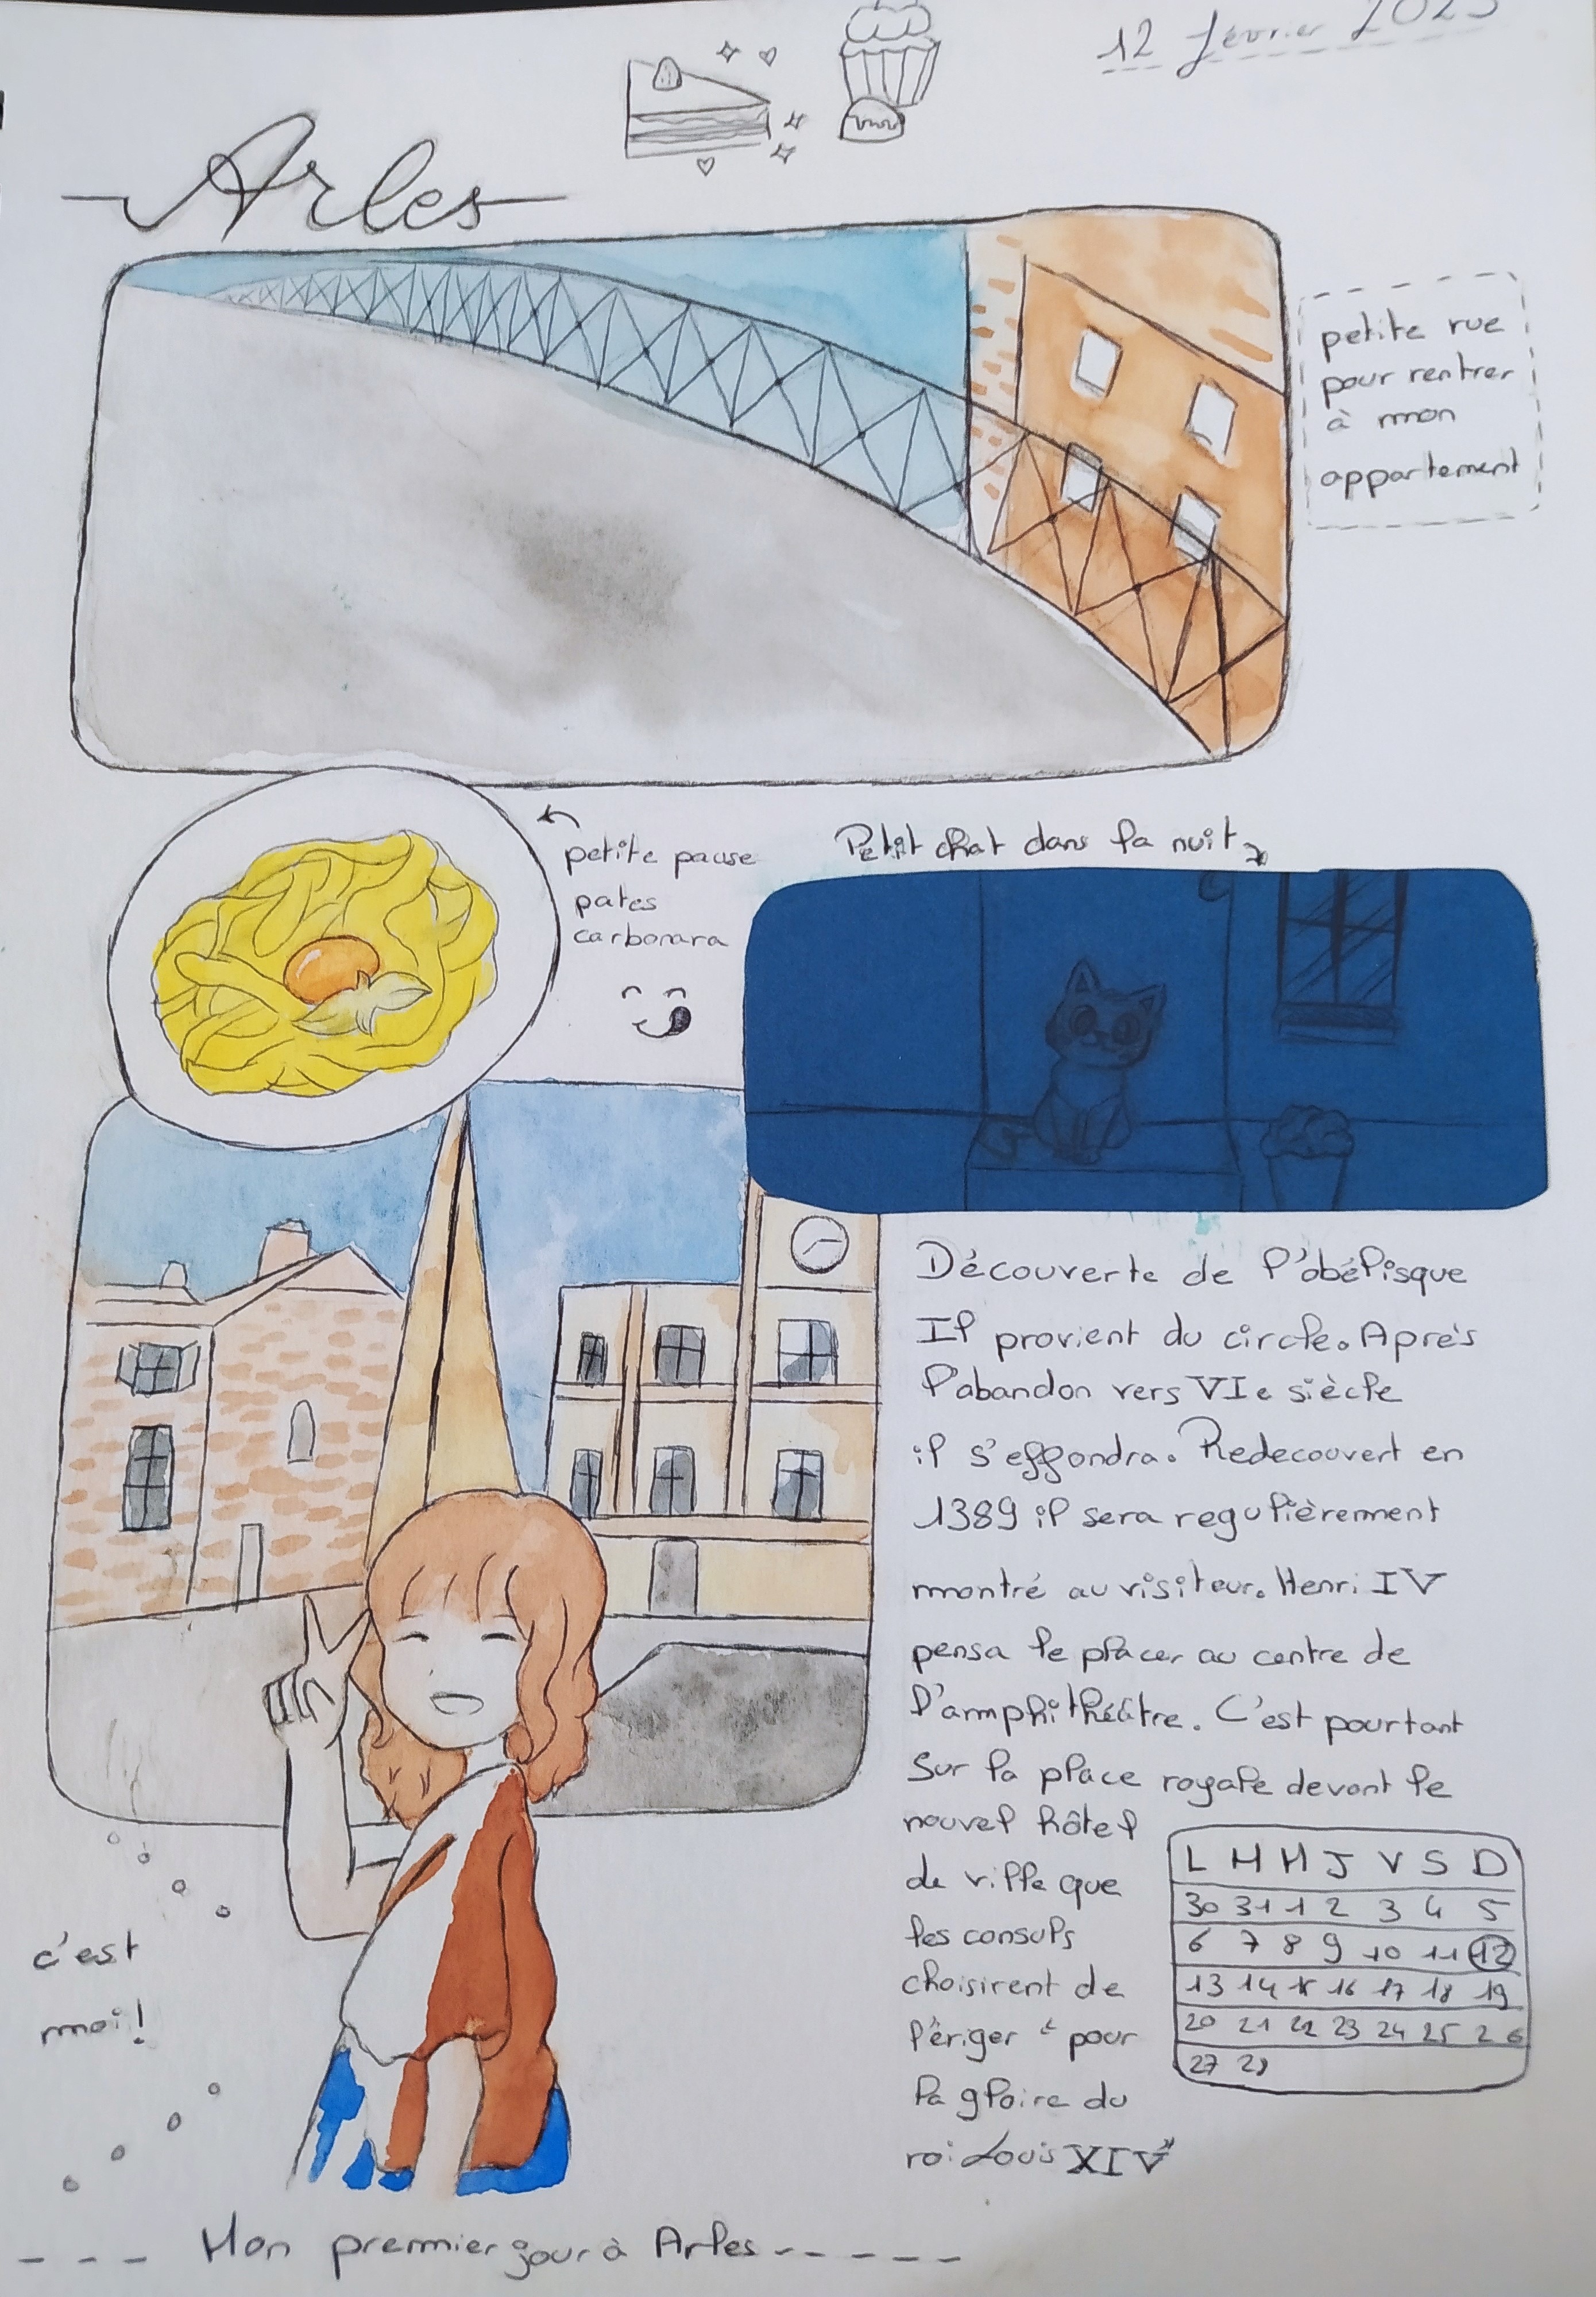 12 février 2023
Arles
petite rue
pour rentrer
à mon
appartement
petite pause
pates
carbonara
Petit chat dans la nuit
Découverte de l'obélisque
Il provient du circle. Après
l'abandon vers VIe siècle
il s'effondra. Redecouvert en
1389 il sera regulièrement
montré au visiteur. Henri IV
pensa le placer au centre de
l'amphithéâtre. C'est pourtant
sur la place royale devant le
nouvel hôtel
de ville que
les consuls
choisirent de
l'ériger " pour
la gloire du
roi Louis XIV"
L M M J V S D
30 31 1 2 3 4 5
6 7 8 9 10 11 12
13 14 15 16 17 18 19
20 21 22 23 24 25 26
27 28
c'est
moi!
Mon premier jour à Arles